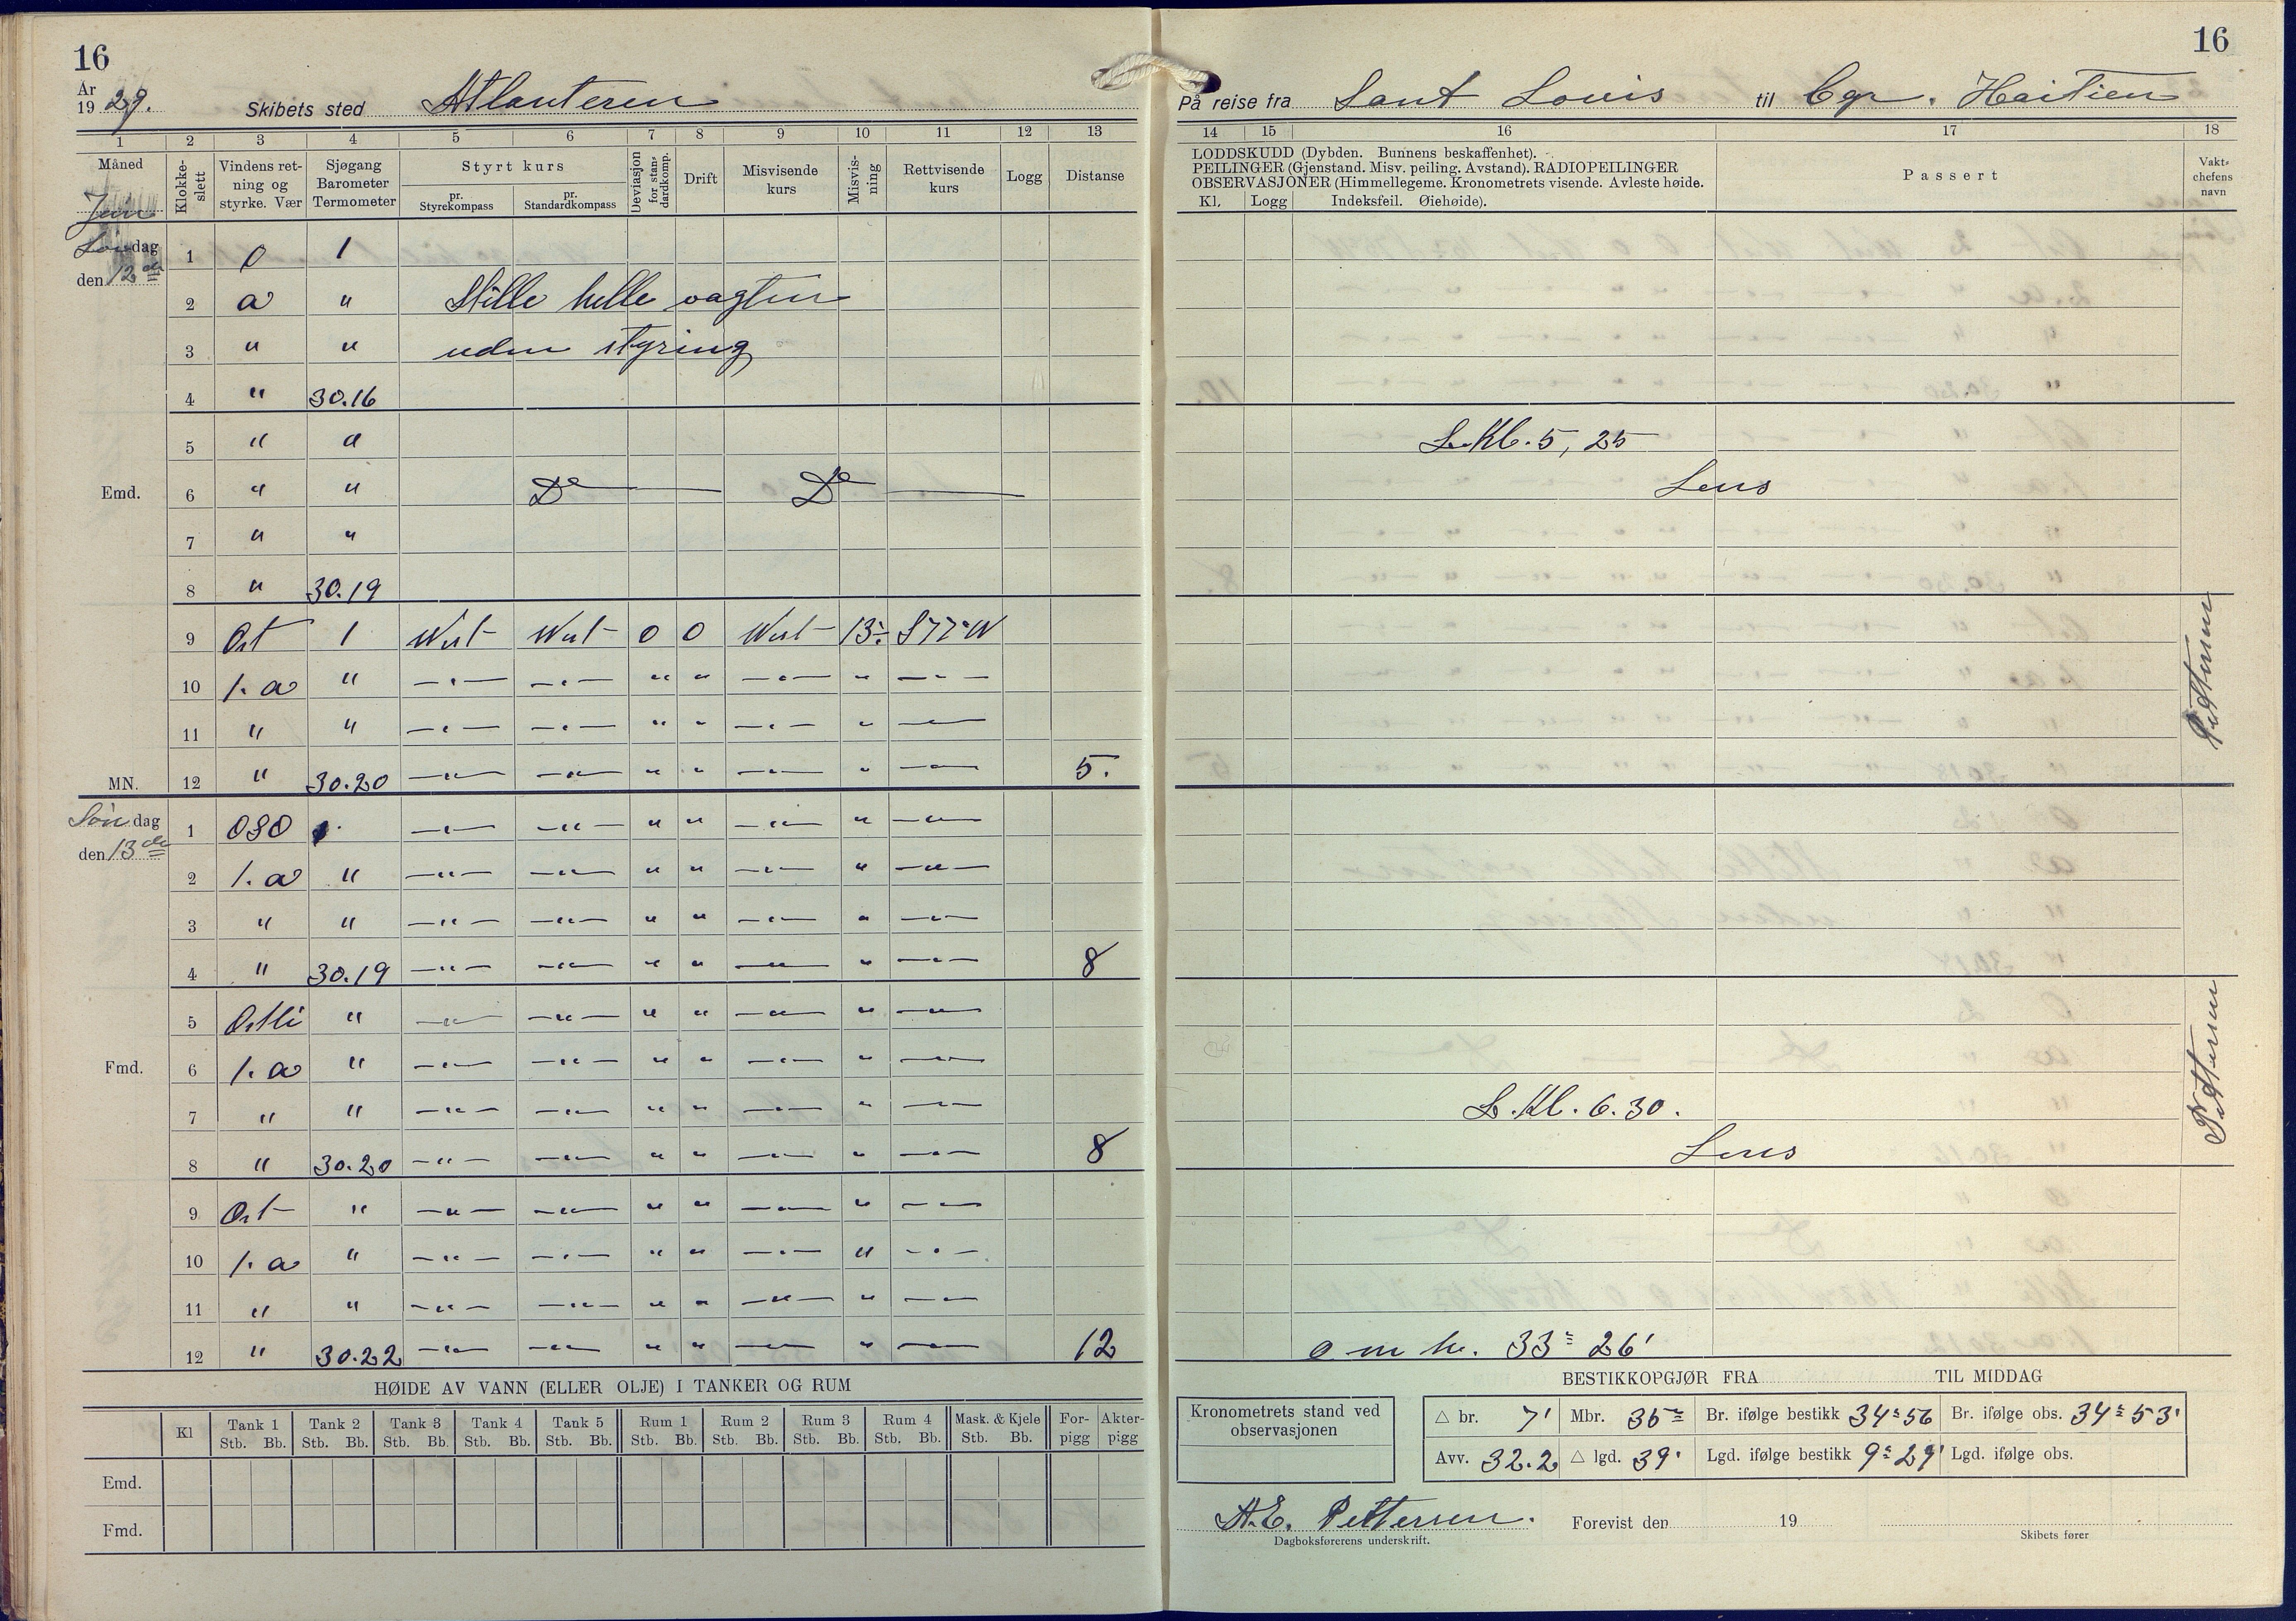 16
År
1929. Skibets sted Atlanteren
1 2 3 4 5 6 7 8 9 10 11 12 13
Måned Klokke-slett Vindens ret-ning og styrke. Vær Sjøgang Barometer Termometer Styrt kurs pr. Styrekompass pr. Standardkompass Deviasjon for stan-dardkomp. Drift Misvisende kurs Misvis-ning Rettvisende kurs Logg Distanse
dag
den 12 de
1 0 1
2 a " Stille helle vagten
3 " " uden styring
4 " 30.16
5 " "
Emd. 6 " " Do — Do —
7 " "
8 " 30.19
9 Ost 1 West West 0 0 West 13° S77°W
10 1. a " —"— —"— " " —"— " —"—
11 " " —"— —"— " " —"— " —"—
MN. 12 " 30.20 —"— —"— " " —"— " —"— 5.
Søndag
den 13 de
1 OSO 1. —"— —"— " " —"— " —"—
2 1. a " —"— —"— " " —"— " —"—
3 " " —"— —"— " " —"— " —"—
4 " 30.19 —"— —"— " " —"— " —"— 8
5 Ostli " —"— —"— " " —"— " —"—
Fmd. 6 1. a " —"— —"— " " —"— " —"—
7 " " —"— —"— " " —"— " —"—
8 " 30.20 —"— —"— " " —"— " —"— 8
9 Ost " —"— —"— " " —"— " —"—
10 1. a " —"— —"— " " —"— " —"—
11 " " —"— —"— " " —"— " —"—
12 " 30.22 —"— —"— " " —"— " —"— 12
HØIDE AV VANN (ELLER OLJE) I TANKER OG RUM
Kl Tank 1 Tank 2 Tank 3 Tank 4 Tank 5 Rum 1 Rum 2 Rum 3 Rum 4 Mask. & Kjele For-pigg Akter-pigg
Stb. Bb. Stb. Bb. Stb. Bb. Stb. Bb. Stb. Bb. Stb. Bb. Stb. Bb. Stb. Bb. Stb. Bb. Stb. Bb.
Emd.
Fmd.
16
På reise fra Sant Louis til Cap. Haitien
14 15 16 17 18
LODDSKUDD (Dybden. Bunnens beskaffenhet).
PEILINGER (Gjenstand. Misv. peiling. Avstand). RADIOPEILINGER
OBSERVASJONER (Himmellegeme. Kronometrets visende. Avleste høide.
Kl. Logg Indeksfeil. Øiehøide).
Passert
Vakt-chefens navn
L. Kl. 5, 25
Lens
Pettersen
Pettersen
L. Kl. 6.30.
Lens
o m h. 33° 26'
BESTIKKOPGJØR FRA TIL MIDDAG
Kronometrets stand ved observasjonen
△ br. 7' Mbr. 35° Br. ifølge bestikk 34° 56 Br. ifølge obs. 34° 53'
Avv. 32.2 △ lgd. 39' Lgd. ifølge bestikk 9° 29' Lgd. ifølge obs.
A.E. Pettersen. Forevist den 19
Dagboksførerens underskrift. Skibets fører